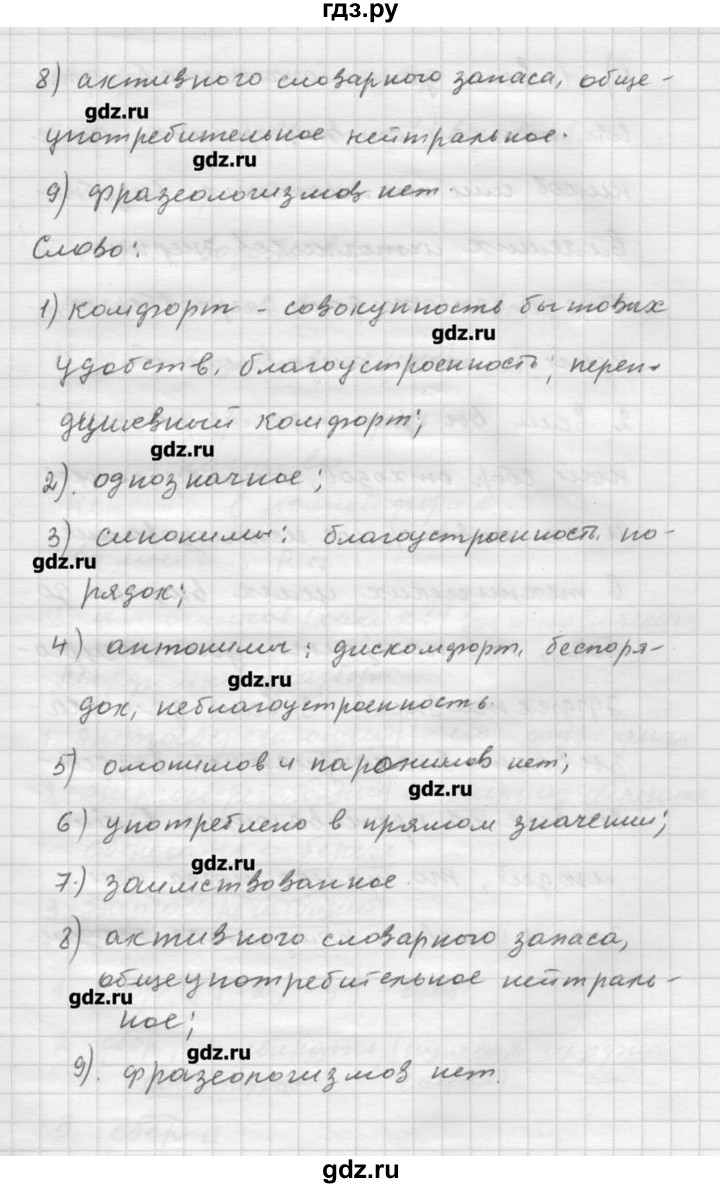 гдз.ру
8) активного словарного запаса, обще-
gdz.ru
употребительное нейтральное.
gdz.ru
9) фразеологизмов нет.
Слово:
1) комфорт - совокупность бытовых
gdz.ru
удобств, благоустроенность; перен.
душевный комфорт;
gdz.ru
2). однозначное;
3) синонимы: благоустроенность, по-
gdz.ru
рядок;
4) антонимы: дискомфорт, беспоря-
gdz.ru
док, неблагоустроенность
5) омонимов и паронимов нет;
gdz.ru
6) употреблено в прямом значении;
gdz.ru
7.) заимствованное.
8) активного словарного запаса,
общеупотребительное нейтраль-
gdz.ru
ное;
gdz.ru
9). фразеологизмов нет.
gdz.ru